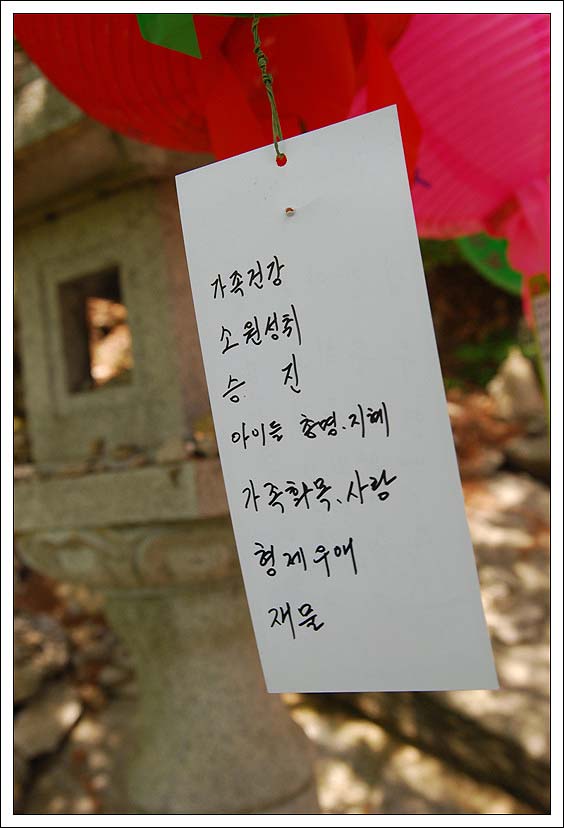 가족건강
소원성취
승 진
아이들 총명.지혜
가족화목.사랑
형제우애
재물